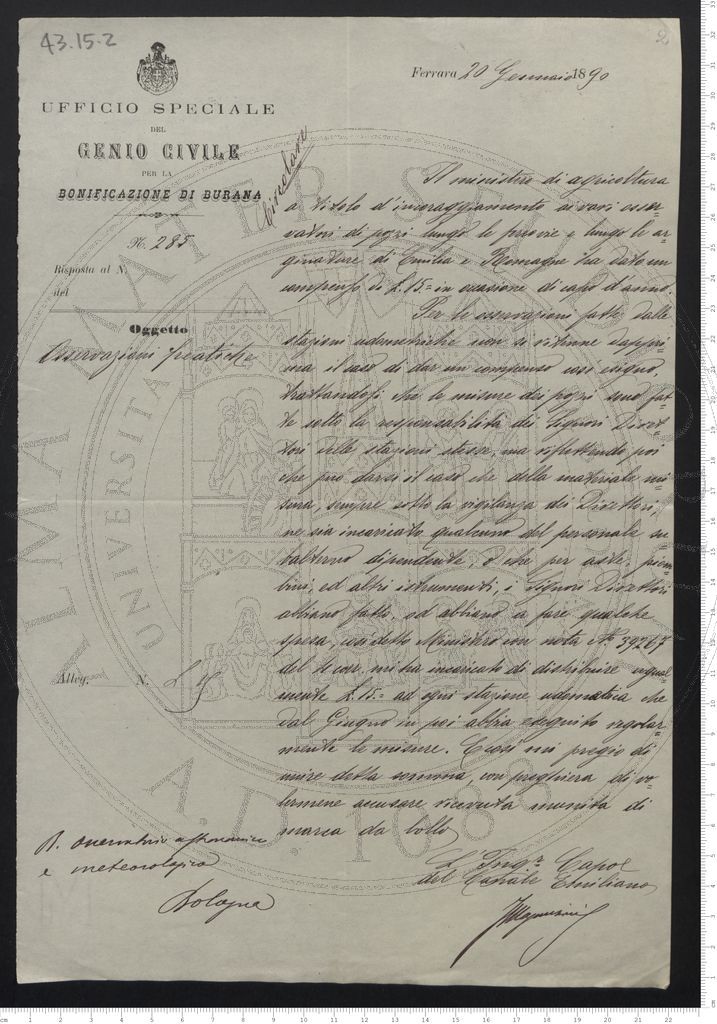 43.15-2
2
Ferrara 20 Gennaio 1890
UFFICIO SPECIALE
DEL
GENIO CIVILE
PER LA
BONIFICAZIONE DI BURANA
N. 285
Risposta al N.
del
Oggetto
Osservazioni freatiche
Alleg. N.
Circolare
Il ministero di agricoltura
a titolo d'incoraggiamento ai vari osser-
vatori di pozzi lungo le ferrovie e lungo le ar-
ginature di Emilia e Romagna ha dato un
compenso di £.15= in occasione di capo d'anno.
Per le osservazioni fatte dalle
stazioni udometriche non si ritenne dappri-
ma il caso di dar un compenso così esiguo,
trattandosi che le misure dei pozzi sono fat-
te sotto la responsabilità dei Signori Diret-
tori delle stazioni stesse, ma riflettendo poi
che può darsi il caso che della materiale mi-
sura, sempre sotto la vigilanza dei Direttori,
ne sia incaricato qualcuno del personale su-
balterno dipendente, o che per aste, piom-
bini, ed altri istrumenti, i Signori Direttori
abbiano fatto, od abbiano a fare qualche
spesa, così detto Ministero con nota N° 39267
del corr. mi ha incaricato di distribuire egual-
mente £.15= ad ogni stazione udometrica che
dal Giugno in poi abbia eseguito regolar-
mente le misure. E così mi pregio di
unire detta somma, con preghiera di vo-
lermene accusare ricevuta munita di
marca da bollo
L'Ing.re Capo
del Canale Emiliano
R. osservatorio astronomico
e meteorologico
Bologna
ALMA MATER STUDIORUM
UNIVERSITÀ
A.D. 1088